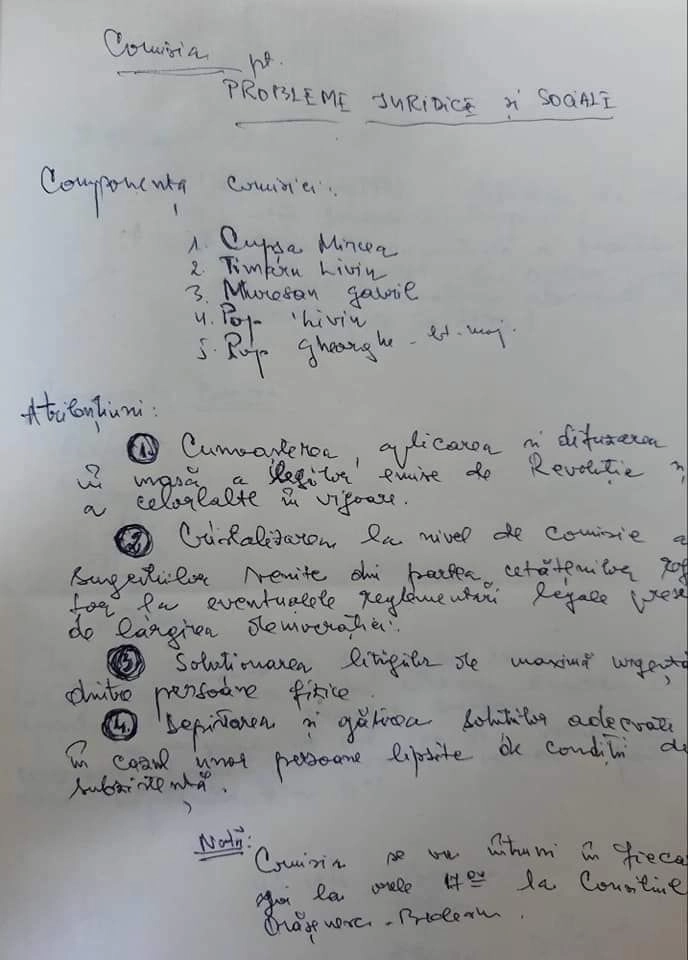 Comisia pt.
PROBLEME JURIDICE și SOCIALE
Componența comisiei:
1. Cupșa Mircea
2. Timaru Liviu
3. Mureșan Gavril
4. Pop Liviu
5. Pop Gheorghe - lt. maj.
Atribuțiuni:
1. Cunoașterea, aplicarea și difuzarea
în masă a legilor emise de Revoluție și
a celorlalte în vigoare.
2. Cristalizarea la nivel de comisie a
sugestiilor venite din partea cetățenilor
la eventualele reglementări legale
de lărgirea democrației.
3. Soluționarea litigiilor de maximă urgență
dintre persoane fizice.
4. Depistarea și găsirea soluțiilor adecvate
în cazul unor persoane lipsite de condiții de
subzistență.
Notă:
Comisia se va întruni în fieca
joi la orele 17 00 la Consiliul
Orășenesc -